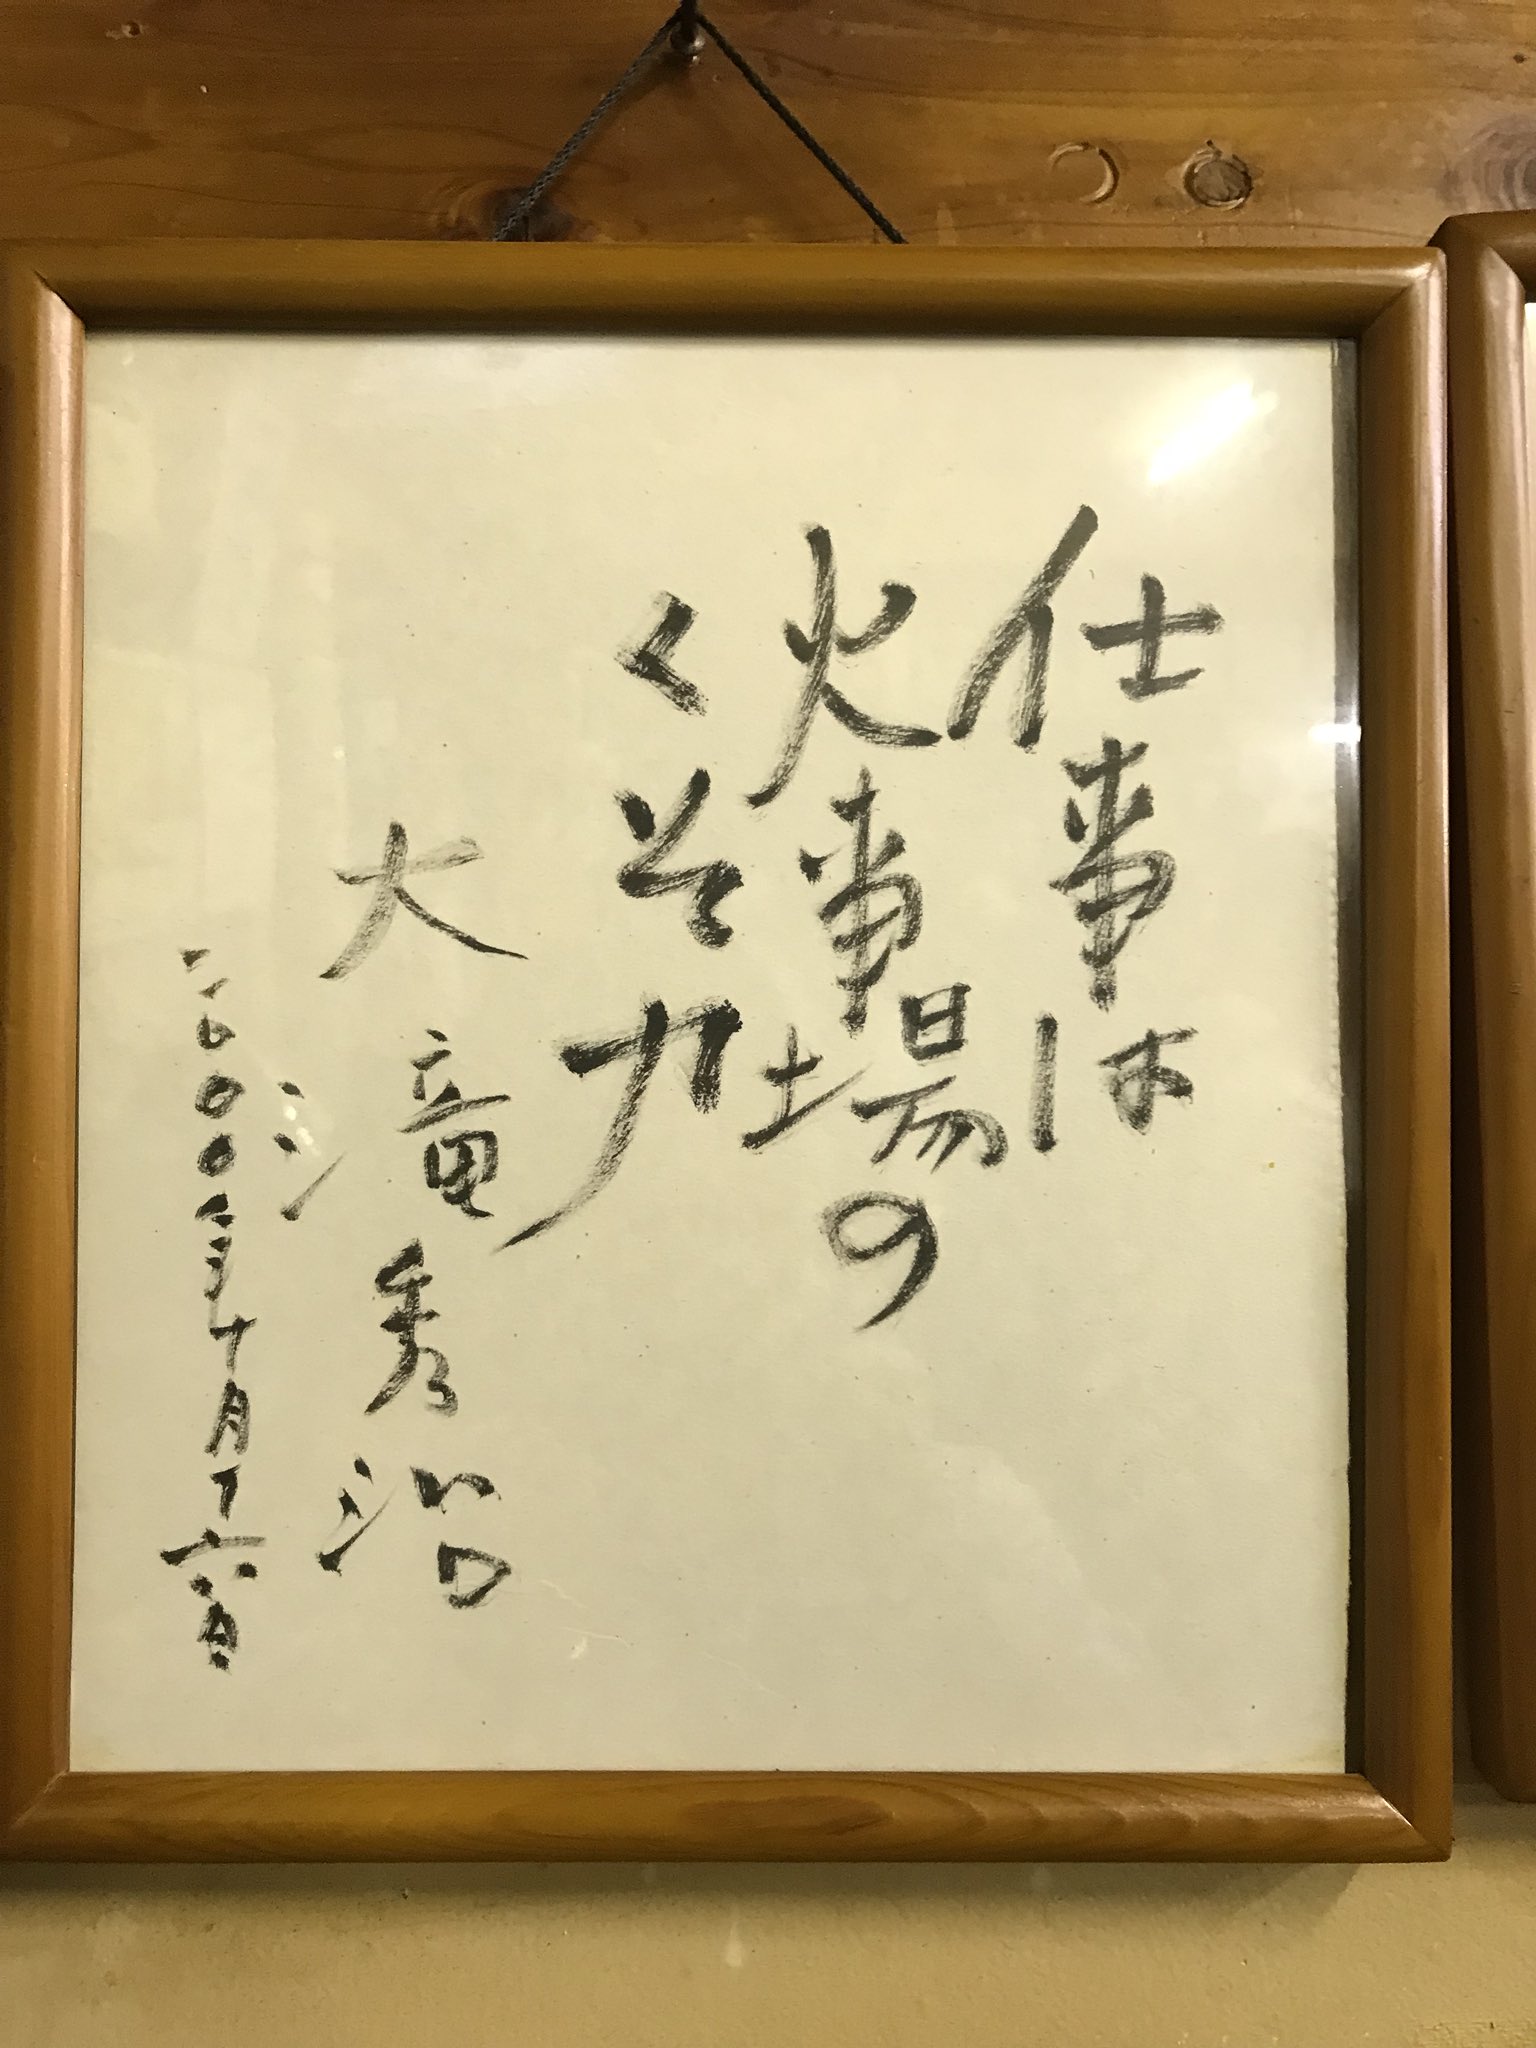 仕事は
火事場の
くそ力
大滝秀治
二〇〇〇年十月十六日